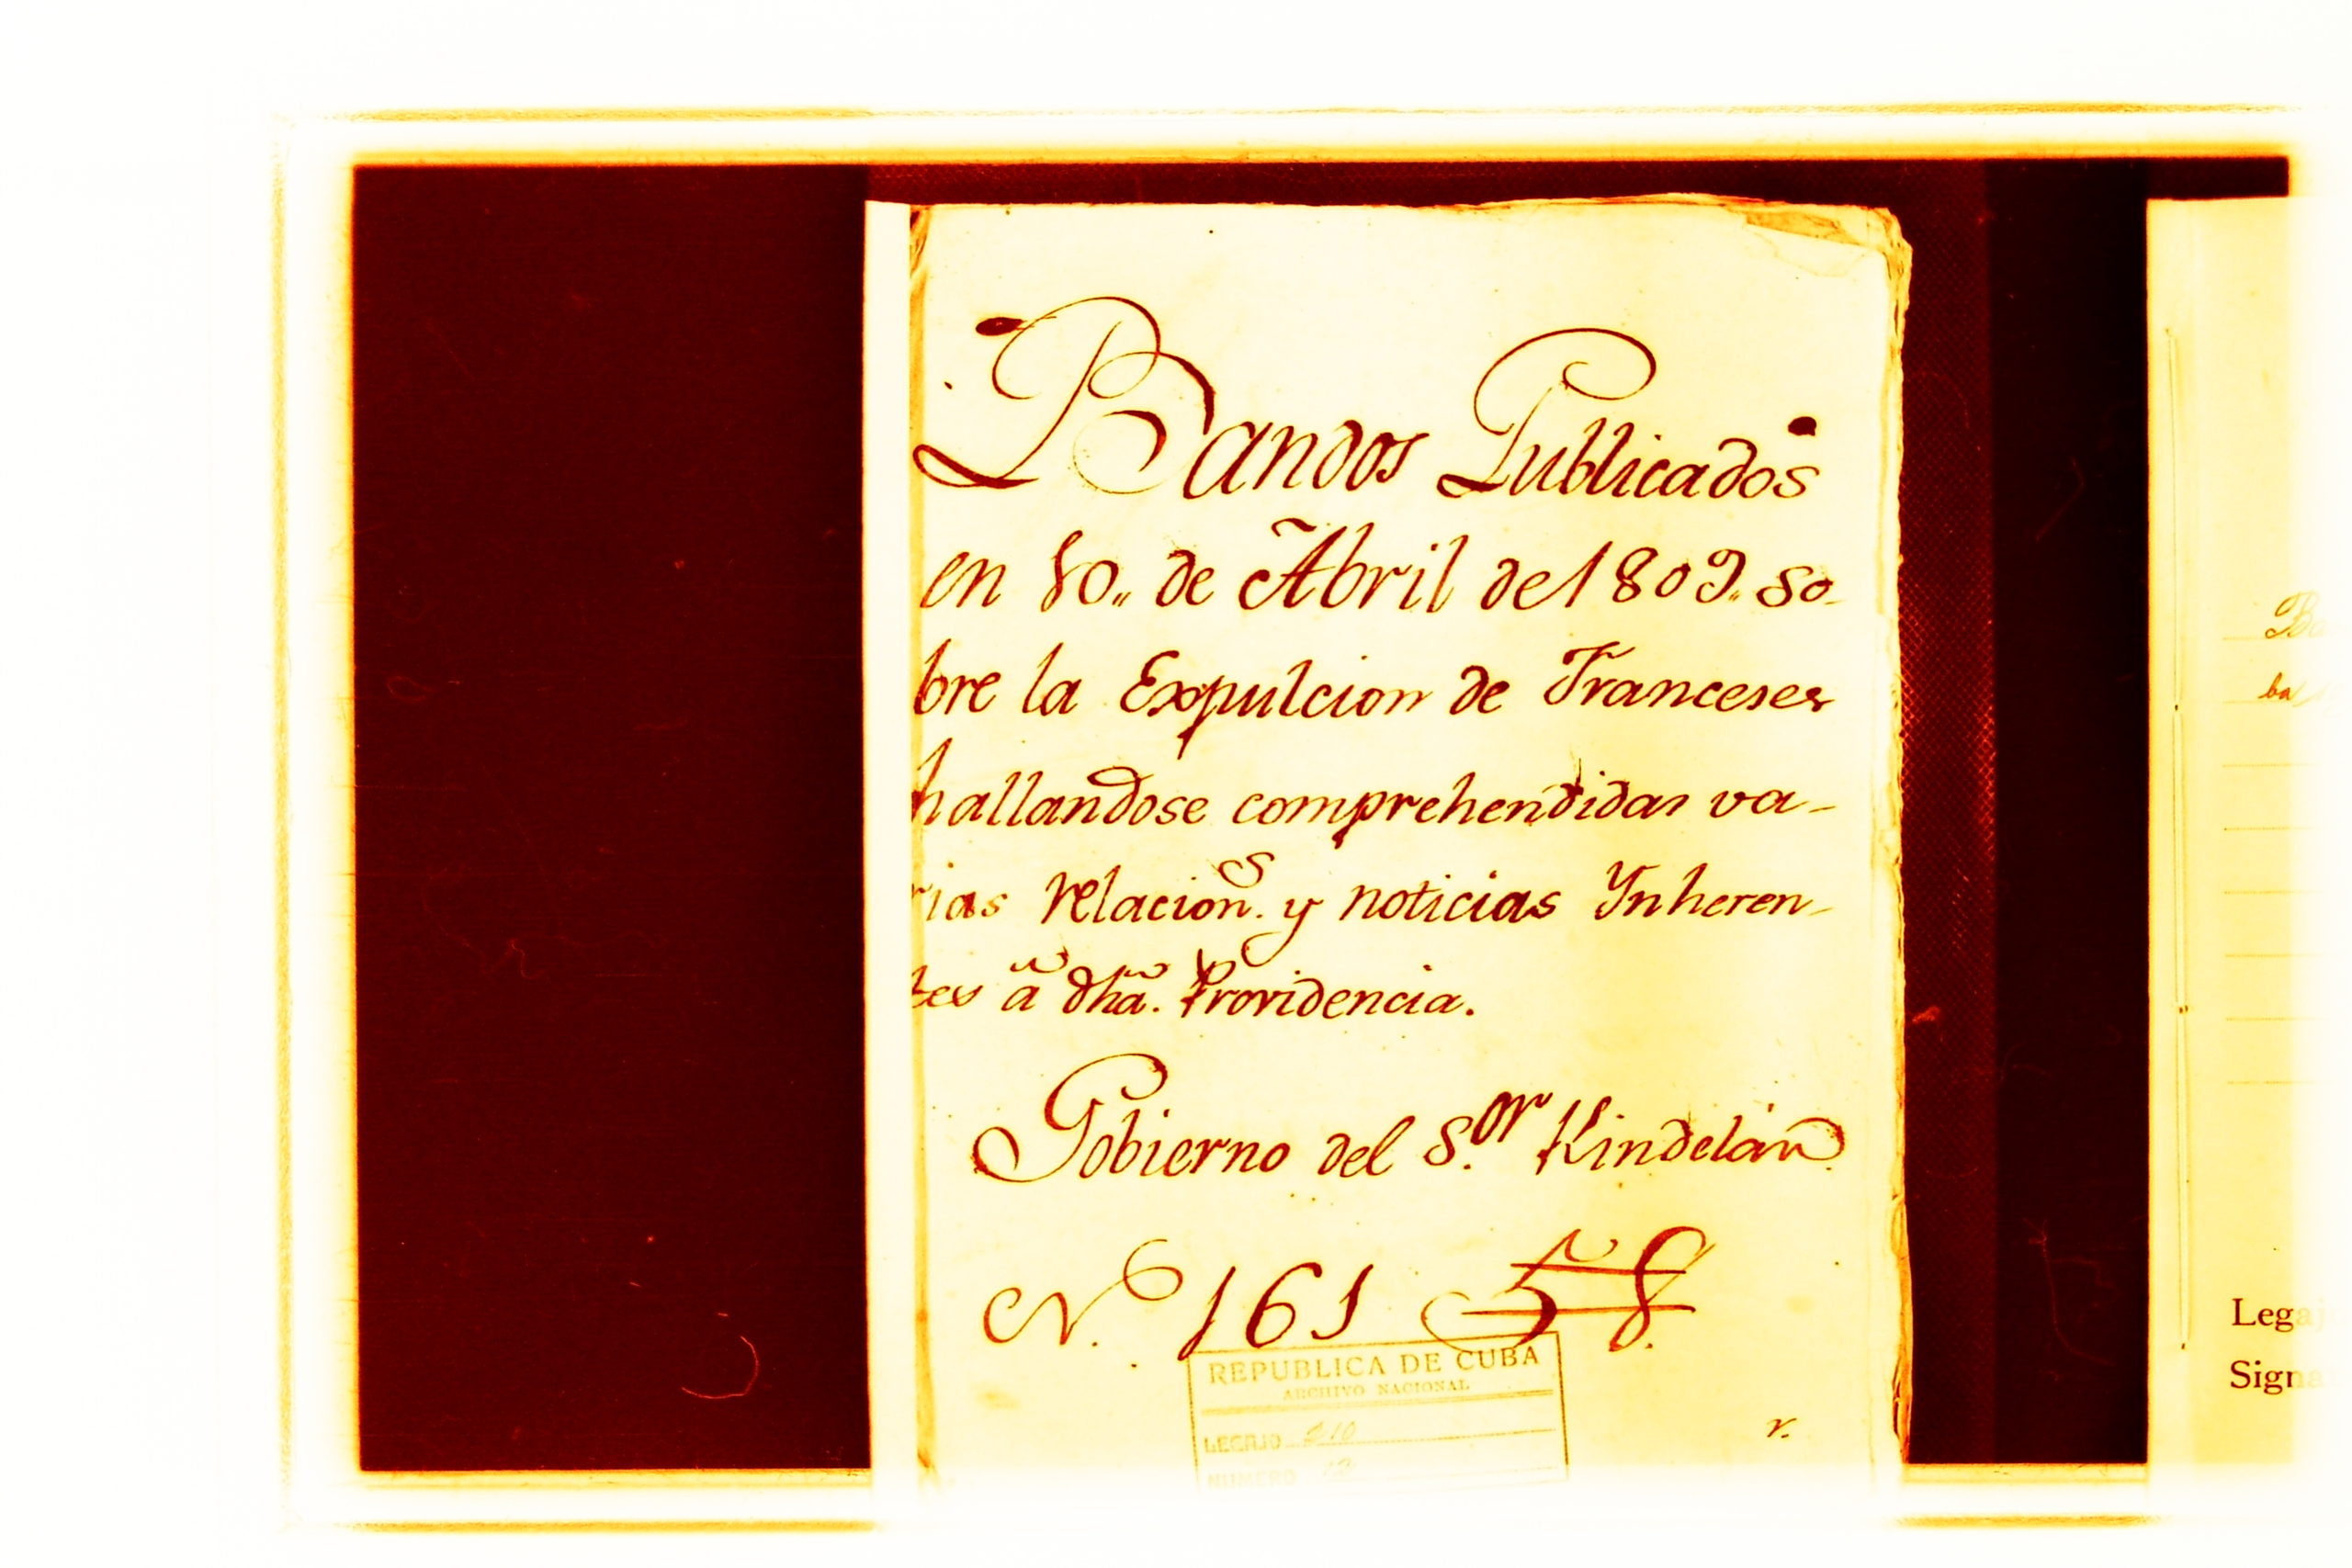 Bandos Publicados
en 10,, de Abril de 1809,, so-
bre la Expulcion de Franceses
hallandose comprehendidas va-
rias relacion.s y noticias Ynheren-
tes â dhã. Providencia.
Gobierno del S.or Kindelán
N.o 161 58.
REPUBLICA DE CUBA
ARCHIVO NACIONAL
LEGAJO 210
NUMERO
r.
Ba
ba
Lega
Signa